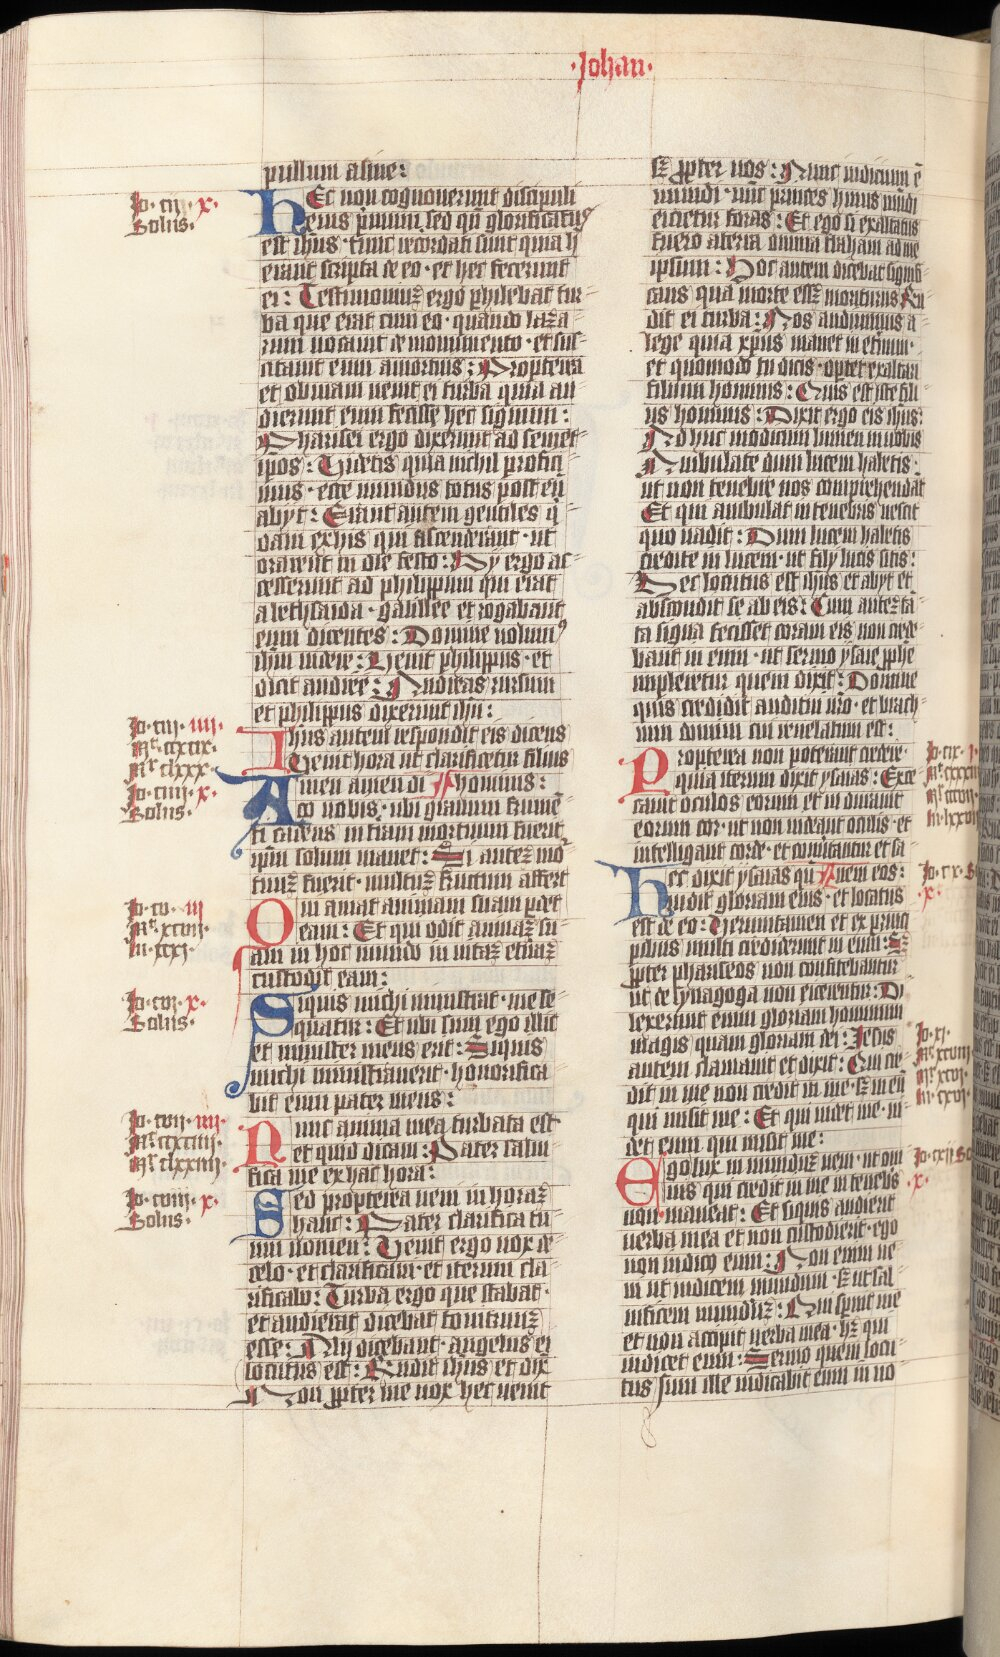 ·Johan·
pullum asine:
Jo· ciij· x·
Solus·
HEc non cognouerunt discipuli
eius primum· sed qn̄ glorificatus
est ihūs· tunc recordati sunt quia h̄
erant scripta de eo· et hec fecerunt
ei: Testimoniuꝫ ergo phibebat tur
ba que erat cum eo· quando laza
rum uocauit de monumento· et sus
citauit eum amortuis: Propterea
et obuiam uenit ei turba quia au
dierunt eum fecisse hec signum:
Pharisei ergo dixerunt ad semet
ipos: Videtis quia nichil profici
mus· ecce mundus totus post eū
abyt: Erant autem gentiles q̄
dam exhis qui ascenderant· ut
orarent in die festo: Hy ergo ac
cesserunt ad philippum qui erat
a bethsaida· galilee et rogabant
eum dicentes: Domine volumꝰ
ihm uidere: Venit philippus· et
dicit andree: Andreas rursum
et philippus dixerunt ihū:
Jo· ciiij· iiii·
Mr· clxxx·
Ihūs autem respondit eis dicens
Venit hora ut clarificetur filius
Jo· cv· x·
Solus·
Amen amen di hominis:
co uobis· nisi granum frumē
ti cadens in tīam mortuum fuerit
ipm solum manet: Si auteꝫ mor
tuuꝫ fuerit· multuꝫ fructum affert
Jo· cv· iii
Mr· xcvii·
Qui amat animam suam pdet
eam: Et qui odit animaꝫ su
am in hoc mundo in uitaꝫ et̄naꝫ
custodit eam:
Jo· cvi· x·
Solus·
Siquis michi ministrat· me se
quatur: Et ubi sum ego illic
et minister meus erit: Siquis
michi ministrauerit· honorifica
bit eum pater meus:
Jo· cvii· iiii·
Nunc anima mea turbata est
et quid dicam: Pater salui
fica me ex hac hora:
Jo· cviii· x·
Solus·
Sed propterea ueni in horaꝫ
hanc: Pater clarifica tu
um nomen: Venit ergo uox de
celo· et clarificaui· et iterum cla
rificabo: Turba ergo que stabat·
et audierat dicebat tonitruuꝫ
esse: Alij dicebant· angelus ei
locutus est: Rudit ihūs et dix
Non ꝓpter me uox hec uenit
sꝫ ꝓpter uos: Nunc iudicium ē
mundi· nūc princeps huius mūdi
eicietur foras: Et ego si exaltatus
fuero aterra omnia traham ad me
ipsum: Hoc autem dicebat signifi
cans qua morte esseꝫ moriturus Rn̄
dit ei turba: Nos audiuimus a
lege quia xp̄us manet in et̄num·
et quomodo tu dicis· oportet exaltari
filium hominis: Quis est iste fili
us hominis: Dixit ergo eis ihūs:
Adhuc modicum lumen in uobis
Ambulate dum lucem habetis·
ut non tenebre uos comprehendāt
Et qui ambulat in tenebris nescit
quo uadit: Dum lucem habetis
credite in lucem· ut filij lucis sitis:
Hec locutus est ihūs et abyt et
abscondit se ab eis: Cum auteꝫ tā
ta signa fecisset coram eis non crede
bant in eum· ut sermo ysaie ꝓphe
impleretur quem dixit: Domine
quis credidit auditui nrō· et brach
ium domini cui reuelatum est:
Propterea non poterant credere·
quia iterum dixit ysaias: Exce
cauit oculos eorum et indurauit
eorum cor· ut non uideant oculis· et
intelligant corde· et conuertantur et sa
Hec dixit ysaias qn̄ nem eos:
uidit gloriam eius· et locutus
est de eo: Verumtamen et ex princi
pibus multi crediderunt in eum: Sꝫ
ꝓpter phariseos non confitebantur
ut de synagoga non eicerentur: Di
lexerunt enim gloriam hominum
magis quam gloriam dei: Jesus
autem clamauit et dixit: Qui cre
dit in me non credit in me· sꝫ in eū
qui misit me: Et qui uidet me· ui
det eum qui misit me:
Ego lux in munduꝫ ueni· ut om
nis qui credit in me in tenebris
non maneat: Et siquis audierit
uerba mea et non custodierit· ego
non iudico eum: Non enim ue
ni ut iudicem mundum· sꝫ ut sal
uificem munduꝫ: Qui spnit me
et non accipit uerba mea· hꝫ qui
iudicet eum: Sermo quem locu
tus sum ille iudicabit eum in no